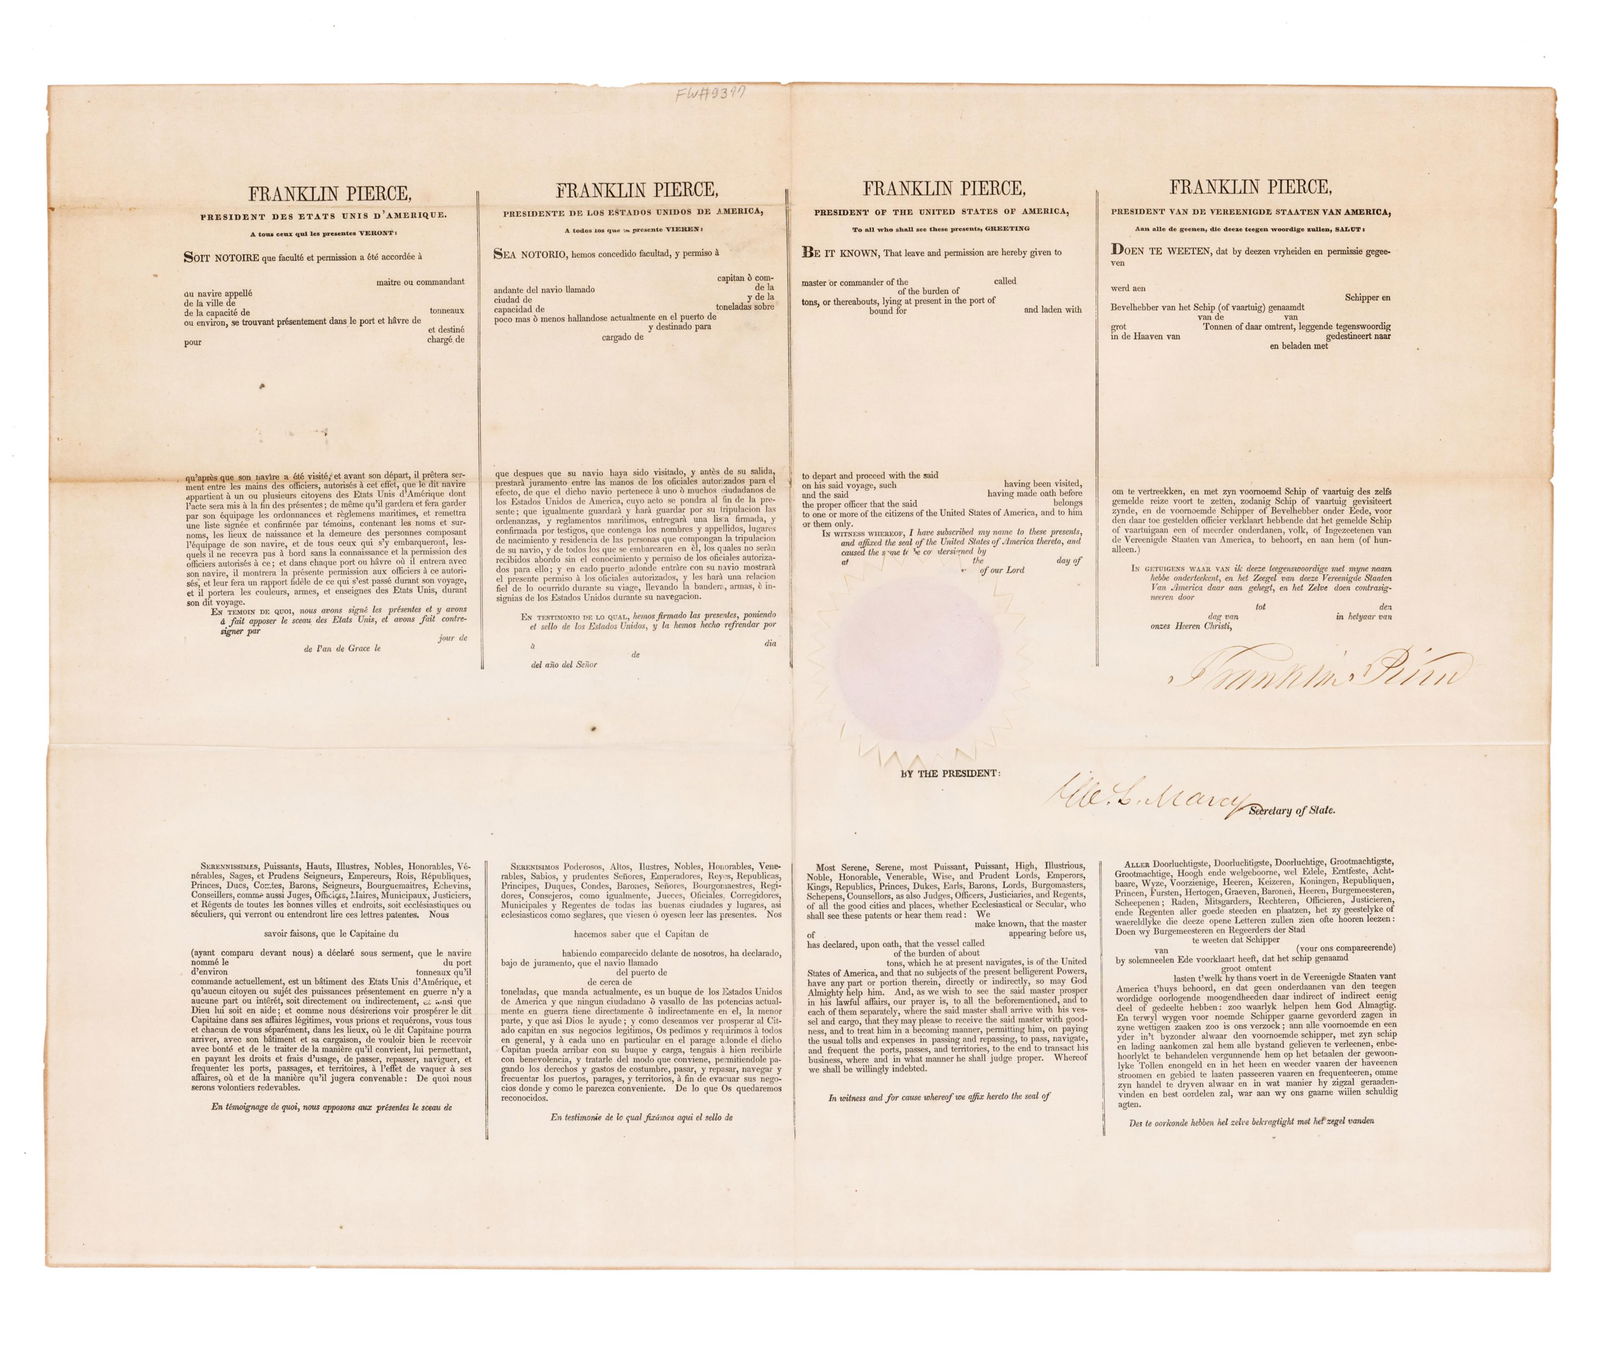 FW#9377
FRANKLIN PIERCE,
PRESIDENT DES ETATS UNIS D'AMERIQUE.
A tous ceux qui les presentes VERONT:
SOIT NOTOIRE que faculté et permission a été accordée à
maitre ou commandant
au navire appellé
de la ville de
de la capacité de tonneaux
ou environ, se trouvant présentement dans le port et hâvre de
et destiné
pour chargé de
qu'après que son navire a été visité, et avant son départ, il prêtera ser-
ment entre les mains des officiers, autorisés à cet effet, que le dit navire
appartient à un ou plusieurs citoyens des Etats Unis d'Amérique dont
l'acte sera mis à la fin des présentes; de même qu'il gardera et fera garder
par son équipage les ordonnances et règlemens maritimes, et remettra
une liste signée et confirmée par témoins, contenant les noms et sur-
noms, les lieux de naissance et la demeure des personnes composant
l'équipage de son navire, et de tous ceux qui s'y embarqueront, les-
quels il ne recevra pas à bord sans la connaissance et la permission des
officiers autorisés à ce; et dans chaque port ou hâvre où il entrera avec
son navire, il montrera la présente permission aux officiers à ce autori-
sés, et leur fera un rapport fidèle de ce qui s'est passé durant son voyage,
et il portera les couleurs, armes, et enseignes des Etats Unis, durant
son dit voyage.
EN TEMOIN DE QUOI, nous avons signé les présentes et y avons
à fait apposer le sceau des Etats Unis, et avons fait contre-
signer par
jour de
de l'an de Grace le
FRANKLIN PIERCE,
PRESIDENTE DE LOS ESTADOS UNIDOS DE AMERICA,
A todos los que la presente VIEREN:
SEA NOTORIO, hemos concedido facultad, y permiso à
capitan ò com-
andante del navio llamado de la
ciudad de y de la
capacidad de toneladas sobre
poco mas ò menos hallandose actualmente en el puerto de
y destinado para
cargado de
que despues que su navio haya sido visitado, y antès de su salida,
prestarà juramento entre las manos de los oficiales autorizados para el
efecto, de que el dicho navio pertenece à uno ò muchos ciudadanos de
los Estados Unidos de America, cuyo acto se pondra al fin de la pre-
sente; que igualmente guardarà y harà guardar por su tripulacion las
ordenanzas, y reglamentos maritimos, entregarà una lista firmada, y
confirmada por testigos, que contenga los nombres y appellidos, lugares
de nacimiento y residencia de las personas que compongan la tripulacion
de su navio, y de todos los que se embarcaren en èl, los quales no seràn
recibidos abordo sin el conocimiento y permiso de los oficiales autoriza-
dos para ello; y en cado puerto adonde entràre con su navio mostrarà
el presente permiso à los oficiales autorizados, y les harà una relacion
fiel de lo ocurrido durante su viage, llevando la bandera, armas, è in-
signias de los Estados Unidos durante su navegacion.
EN TESTIMONIO DE LO QUAL, hemos firmado las presentes, poniendo
et sello de los Estados Unidos, y la hemos hecho refrendar por
à dia
de
del año del Señor
FRANKLIN PIERCE,
PRESIDENT OF THE UNITED STATES OF AMERICA,
To all who shall see these presents, GREETING
BE IT KNOWN, That leave and permission are hereby given to
master or commander of the called
of the burden of
tons, or thereabouts, lying at present in the port of
bound for and laden with
to depart and proceed with the said
on his said voyage, such having been visited,
and the said having made oath before
the proper officer that the said belongs
to one or more of the citizens of the United States of America, and to him
or them only.
IN WITNESS WHEREOF, I have subscribed my name to these presents,
and affixed the seal of the United States of America thereto, and
caused the same to be countersigned by
at the day of
of our Lord
FRANKLIN PIERCE,
PRESIDENT VAN DE VEREENIGDE STAATEN VAN AMERICA,
Aan alle de geenen, die deeze teegen woordige zullen, SALUT:
DOEN TE WEETEN, dat by deezen vryheiden en permissie gegee-
ven
werd aen
Schipper en
Bevelhebber van het Schip (of vaartuig) genaamdt
van de van
grot Tonnen of daar omtrent, leggende tegenswoordig
in de Haaven van gedestineert naar
en beladen met
om te vertreekken, en met zyn voornoemd Schip of vaartuig des zelfs
gemelde reize voort te zetten, zodanig Schip of vaartuig gevisiteert
zynde, en de voornoemde Schipper of Bevelhebber onder Eede, voor
den daar toe gestelden officier verklaart hebbende dat het gemelde Schip
of vaartuigaan een of meezler onderdanen, volk, of Ingezeetenen van
de Vereenigde Staaten van America, to behoort, en aan hem (of hun-
alleen.)
IN GETUIGENS WAAR VAN ik deeze teegenswoordige met myne naam
hebbe onderteekent, en het Zeegel van deeze Vereenigde Staaten
Van America daar aan gehegt, en het Zelve doen contrasig-
neeren door
tot den
dag van in hetyaar van
onzes Heeren Christi,
Franklin Pierce
BY THE PRESIDENT:
W. L. Marcy
Secretary of State.
SERENNISSIMES, Puissants, Hauts, Illustres, Nobles, Honorables, Vé-
nérables, Sages, et Prudens Seigneurs, Empereurs, Rois, Républiques,
Princes, Ducs, Comtes, Barons, Seigneurs, Bourguemaitres, Echevins,
Conseillers, comme aussi Juges, Officiers, Maires, Municipaux, Justiciers,
et Régents de toutes les bonnes villes et endroits, soit ecclésiastiques ou
séculiers, qui verront ou entendront lire ces lettres patentes. Nous
savoir faisons, que le Capitaine du
(ayant comparu devant nous) a déclaré sous serment, que le navire
nommé le du port
d'environ tonneaux qu'il
commande actuellement, est un bâtiment des Etats Unis d'Amérique, et
qu'aucun citoyen ou sujét des puissances présentement en guerre n'y a
aucune part ou intérêt, soit directement ou indirectement, et ainsi que
Dieu lui soit en aide; et comme nous désirerions voir prospérer le dit
Capitaine dans ses affaires légitimes, vous prions et requérons, vous tous
et chacun de vous séparément, dans les lieux, où le dit Capitaine pourra
arriver, avec son bâtiment et sa cargaison, de vouloir bien le recevoir
avec bonté et de le traiter de la manière qu'il convient, lui permettant,
en payant les droits et frais d'usage, de passer, repasser, naviguer, et
frequenter les ports, passages, et territoires, à l'effet de vaquer à ses
affaires, où et de la manière qu'il jugera convenable: De quoi nous
serons volontiers redevables.
En témoignage de quoi, nous apposons aux présentes le sceau de
SERENISIMOS Poderosos, Altos, Ilustres, Nobles, Honorables, Vene-
rables, Sabios, y prudentes Señores, Emperadores, Reyes, Republicas,
Principes, Duques, Condes, Barones, Señores, Bourgomaestres, Regi-
dores, Consejeros, como igualmente, Jueces, Oficiales, Corregidores,
Municipales y Regentes de todas las buenas ciudades y lugares, asi
eclesiasticos como seglares, que viesen ò oyesen leer las presentes. Nos
hacemos saber que el Capitan de
habiendo comparecido delante de nosotros, ha declarado,
bajo de juramento, que el navio llamado
del puerto de
de cerca de
toneladas, que manda actualmente, es un buque de los Estados Unidos
de America y que ningun ciudadano ò vasallo de las potencias actual-
mente en guerra tiene directamente ò indirectamente en el, la menor
parte, y que asi Dios le ayude; y como deseamos ver prosperar al Cit-
ado capitan en sus negocios legitimos, Os pedimos y requirimos à todos
en general, y à cada uno en particular en el parage adonde el dicho
Capitan pueda arribar con su buque y carga, tengais à hien recibirle
con benevolencia, y tratarle del modo que conviene, permitiendole pa-
gando los derechos y gastos de costumbre, pasar, y repasar, navegar y
frecuentar los puertos, parages, y territorios, à fin de evacuar sus nego-
cios donde y como le parezca conveniente. De lo que Os quedaremos
reconocidos.
En testimonie de lo qual fixàmos aqui el sello de
Most Serene, Serene, most Puissant, Puissant, High, Illustrious,
Noble, Honorable, Venerable, Wise, and Prudent Lords, Emperors,
Kings, Republics, Princes, Dukes, Earls, Barons, Lords, Burgomasters,
Schepens, Counsellors, as also Judges, Officers, Justiciaries, and Regents,
of all the good cities and places, whether Ecclesiastical or Secular, who
shall see these patents or hear them read: We
make known, that the master
of appearing before us,
has declared, upon oath, that the vessel called
of the burden of about
tons, which he at present navigates, is of the United
States of America, and that no subjects of the present belligerent Powers,
have any part or portion therein, directly or indirectly, so may God
Almighty help him. And, as we wish to see the said master prosper
in his lawful affairs, our prayer is, to all the beforementioned, and to
each of them separately, where the said master shall arrive with his ves-
sel and cargo, that they may please to receive the said master with good-
ness, and to treat him in a becoming manner, permitting him, on paying
the usual tolls and expenses in passing and repassing, to pass, navigate,
and frequent the ports, passes, and territories, to the end to transact his
business, where and in what manner he shall judge proper. Whereof
we shall be willingly indebted.
In witness and for cause whereof we affix hereto the seal of
ALLER Doorluchtigste, Doorluchtigste, Doorluchtige, Grootmachtigste,
Grootmachtige, Hoogh ende welgeboorne, wel Edele, Erntfeste, Acht-
baare, Wyze, Voorzienige, Heeren, Keizeren, Koningen, Republiquen,
Princen, Fursten, Hertogen, Graeven, Baronen, Heeren, Burgemeesteren,
Scheepenen; Raden, Mitsgarders, Rechteren, Officieren, Justicieren,
ende Regenten aller goede steeden en plaatzen, het zy geestelyke of
waereldlyke die deeze opene Letteren zullen zien ofte hooren leezen:
Doen wy Burgemeesteren en Regeerders der Stad
te weeten dat Schipper
van (vour ons compareerende)
by solemneelen Ede voorklaart heeft, dat het schip genaamd
groot omtent
lasten t'welk hy thans voert in de Vereenigde Staaten vant
America t'huys behoord, en dat geen onderdaanen van den teegen
wordidge oorlogende moogendheeden daar indirect of indirect eenig
deel of gedeelte behoord: zoo waarlyk helpen hem God Almagtig.
En terwyl wygen voor noemde Schipper gaarne gevorderd zagen in
zyne wettigen zaaken zoo is ons verzock; ann alle voornoemde en een
yder in't byzonder alwaar den voornoemde schipper, met zyn schip
en lading aankomen zal hem alle bystand gelieven te verleenen, enbe-
hoorlykt te behandelen vergunnende hem op het betaalen der gewoon-
lyke Tollen enongeld en in het heen en weeder vaaren der haveenen
stroomen en gebied te laaten passeeren vaaren en frequenteeren, omme
zyn handel te dryven alwaar en in wat manier hy zigzal geraaden-
vinden en best oordelen zal, war aan wy ons gaarne willen schuldig
agten.
Des te oorkonde hebben hel zelve bekragtight mot het zegel vanden